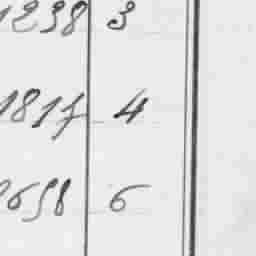 1238 3
1817 4
2658 6